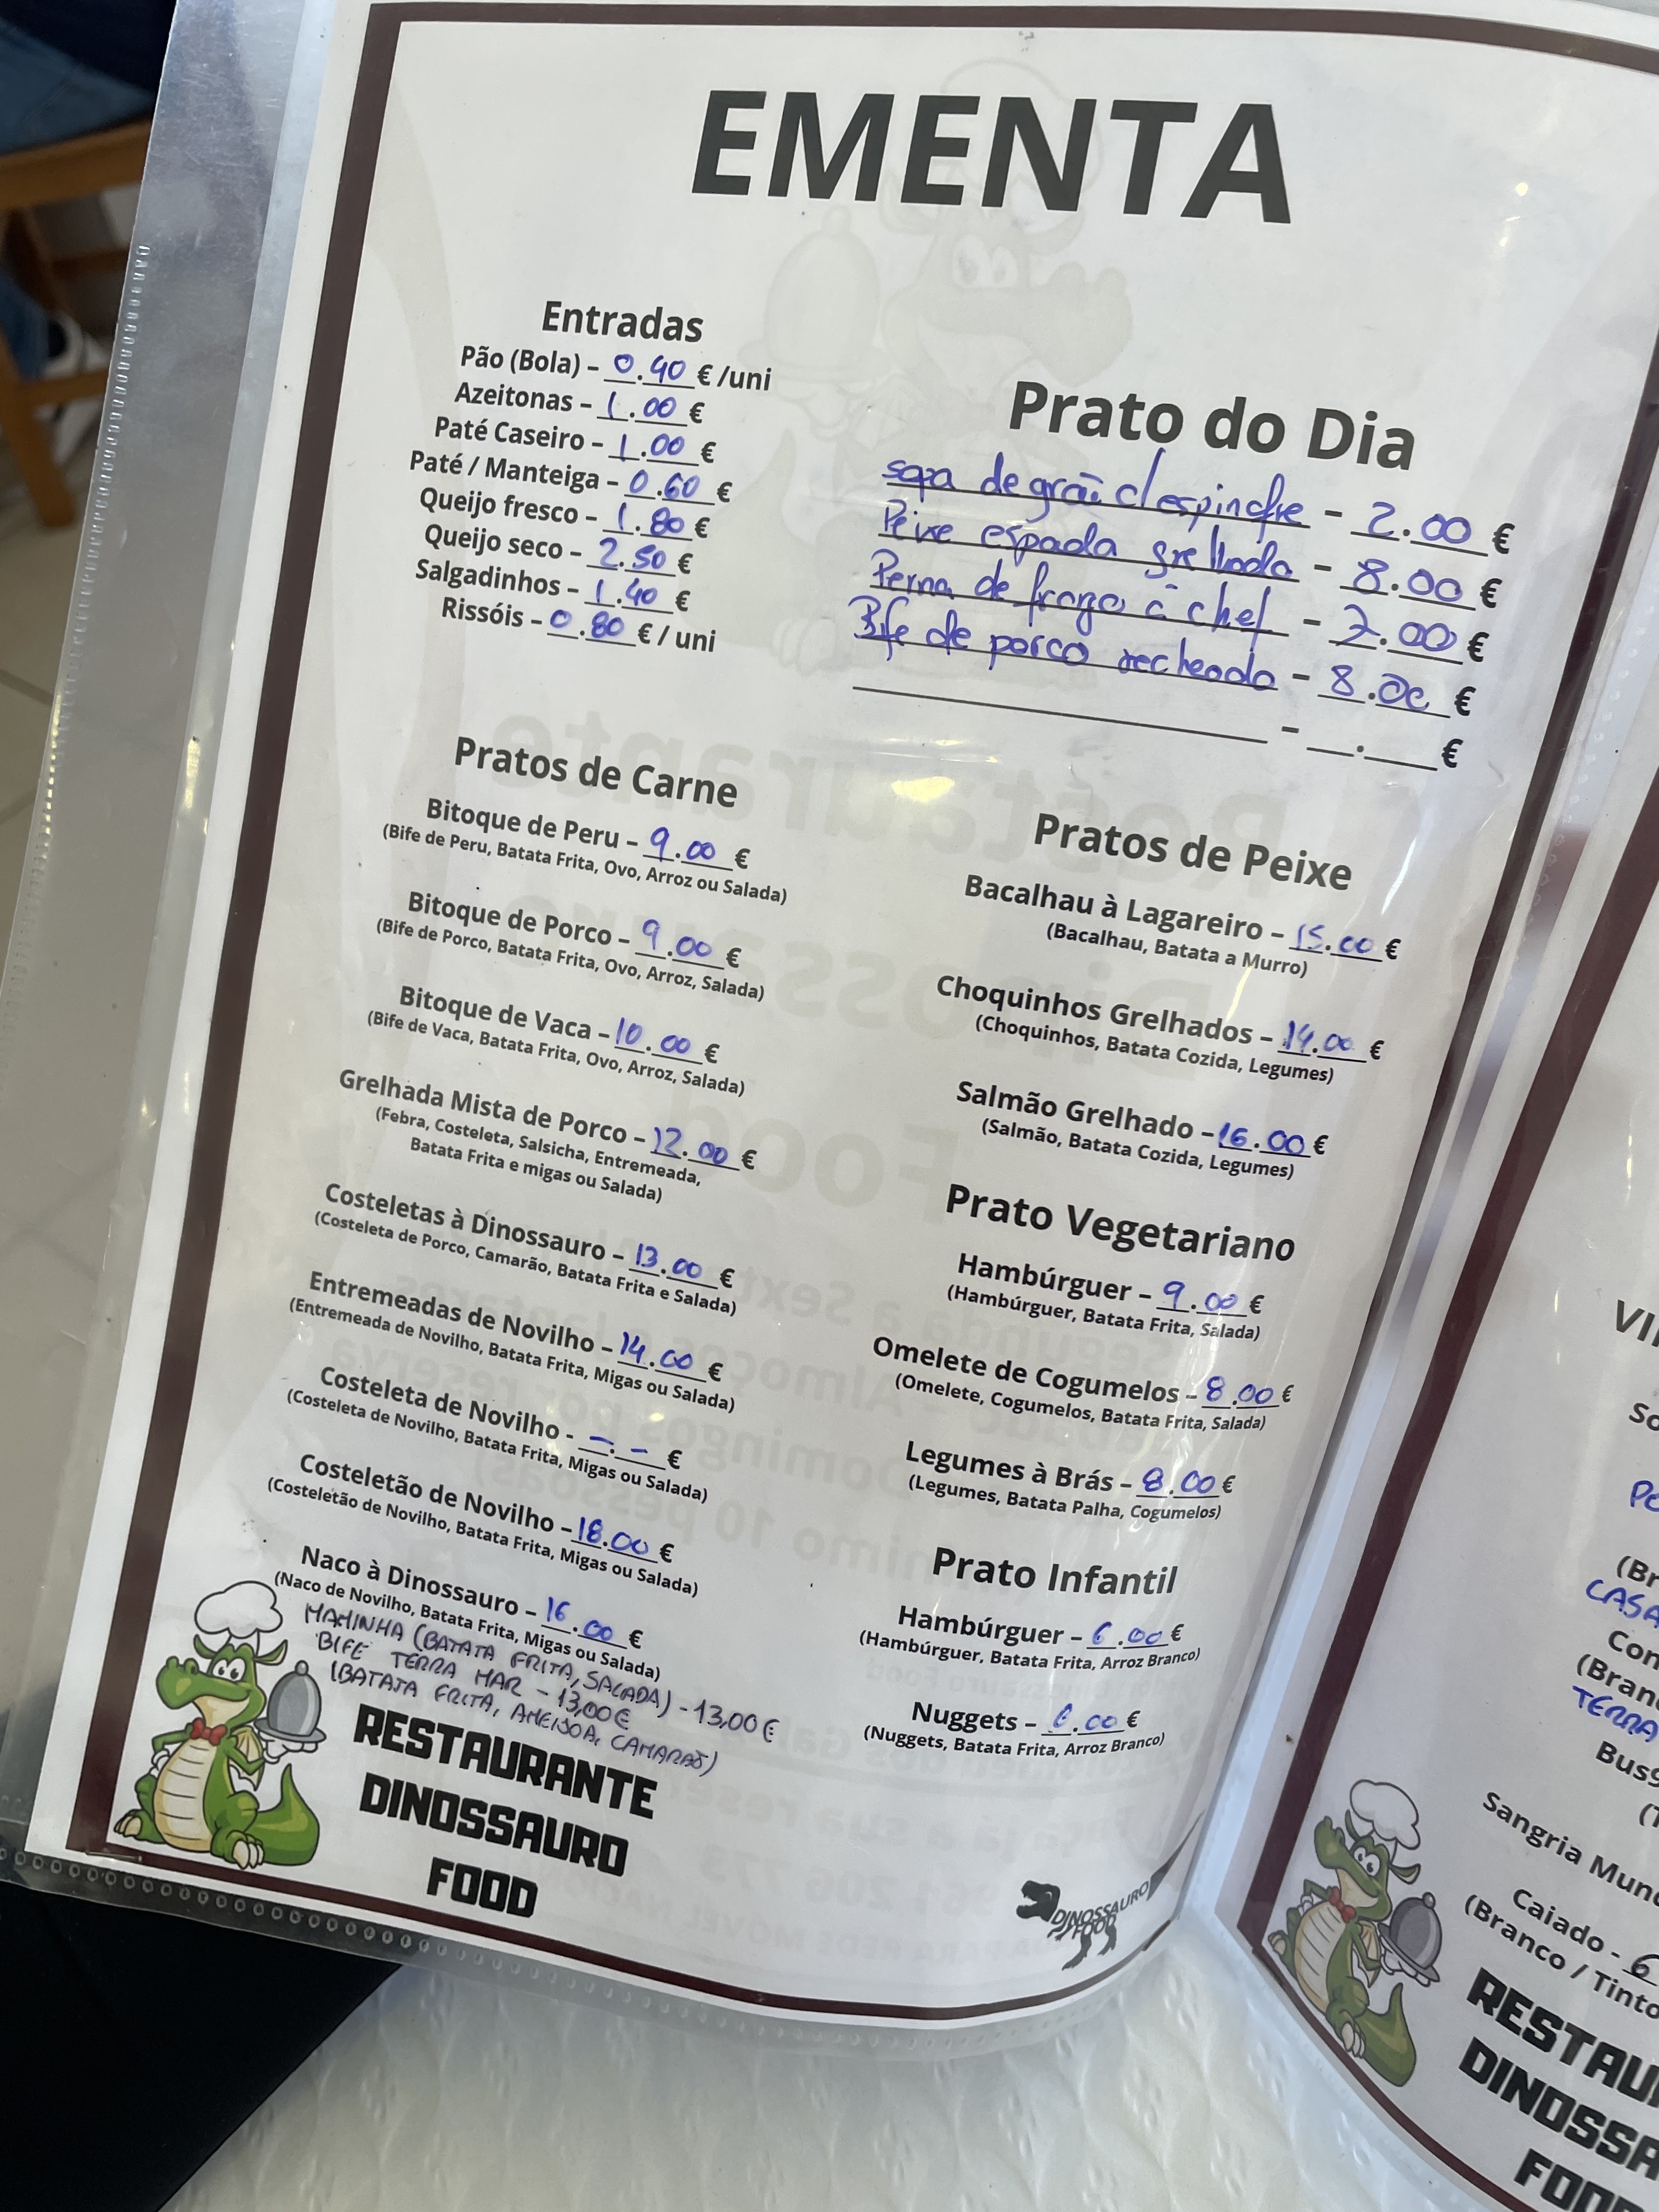 EMENTA
Entradas
Pão (Bola) – 0.40 € /uni
Azeitonas – 1.00 €
Paté Caseiro – 1.00 €
Paté / Manteiga – 0.60 €
Queijo fresco – 1.80 €
Queijo seco – 2.50 €
Salgadinhos – 1.40 €
Rissóis – 0.80 € / uni
Prato do Dia
sopa de grão c/ espinafre – 2.00 €
Peixe espada grelhado – 8.00 €
Perna de frango à chef – 7.00 €
Bife de porco recheado – 8.00 €
– . €
Pratos de Carne
Bitoque de Peru – 9.00 €
(Bife de Peru, Batata Frita, Ovo, Arroz ou Salada)
Bitoque de Porco – 9.00 €
(Bife de Porco, Batata Frita, Ovo, Arroz, Salada)
Bitoque de Vaca – 10.00 €
(Bife de Vaca, Batata Frita, Ovo, Arroz, Salada)
Grelhada Mista de Porco – 12.00 €
(Febra, Costeleta, Salsicha, Entremeada,
Batata Frita e migas ou Salada)
Costeletas à Dinossauro – 13.00 €
(Costeleta de Porco, Camarão, Batata Frita e Salada)
Entremeadas de Novilho – 14.00 €
(Entremeada de Novilho, Batata Frita, Migas ou Salada)
Costeleta de Novilho - –.– €
(Costeleta de Novilho, Batata Frita, Migas ou Salada)
Costeletão de Novilho – 18.00 €
(Costeletão de Novilho, Batata Frita, Migas ou Salada)
Naco à Dinossauro – 16.00 €
(Naco de Novilho, Batata Frita, Migas ou Salada)
MAMINHA (BATATA FRITA, SALADA) - 13,00 €
BIFE TERRA MAR - 13,00 €
(BATATA FRITA, AMEIJOA, CAMARÃO)
RESTAURANTE
DINOSSAURO
FOOD
Pratos de Peixe
Bacalhau à Lagareiro – 15.00 €
(Bacalhau, Batata a Murro)
Choquinhos Grelhados – 14.00 €
(Choquinhos, Batata Cozida, Legumes)
Salmão Grelhado – 16.00 €
(Salmão, Batata Cozida, Legumes)
Prato Vegetariano
Hambúrguer – 9.00 €
(Hambúrguer, Batata Frita, Salada)
Omelete de Cogumelos – 8.00 €
(Omelete, Cogumelos, Batata Frita, Salada)
Legumes à Brás – 8.00 €
(Legumes, Batata Palha, Cogumelos)
Prato Infantil
Hambúrguer – 6.00 €
(Hambúrguer, Batata Frita, Arroz Branco)
Nuggets – 6.00 €
(Nuggets, Batata Frita, Arroz Branco)
DINOSSAURO
FOOD
CASA
TERRA
Sangria
Caiado - 6
(Branco / Tinto